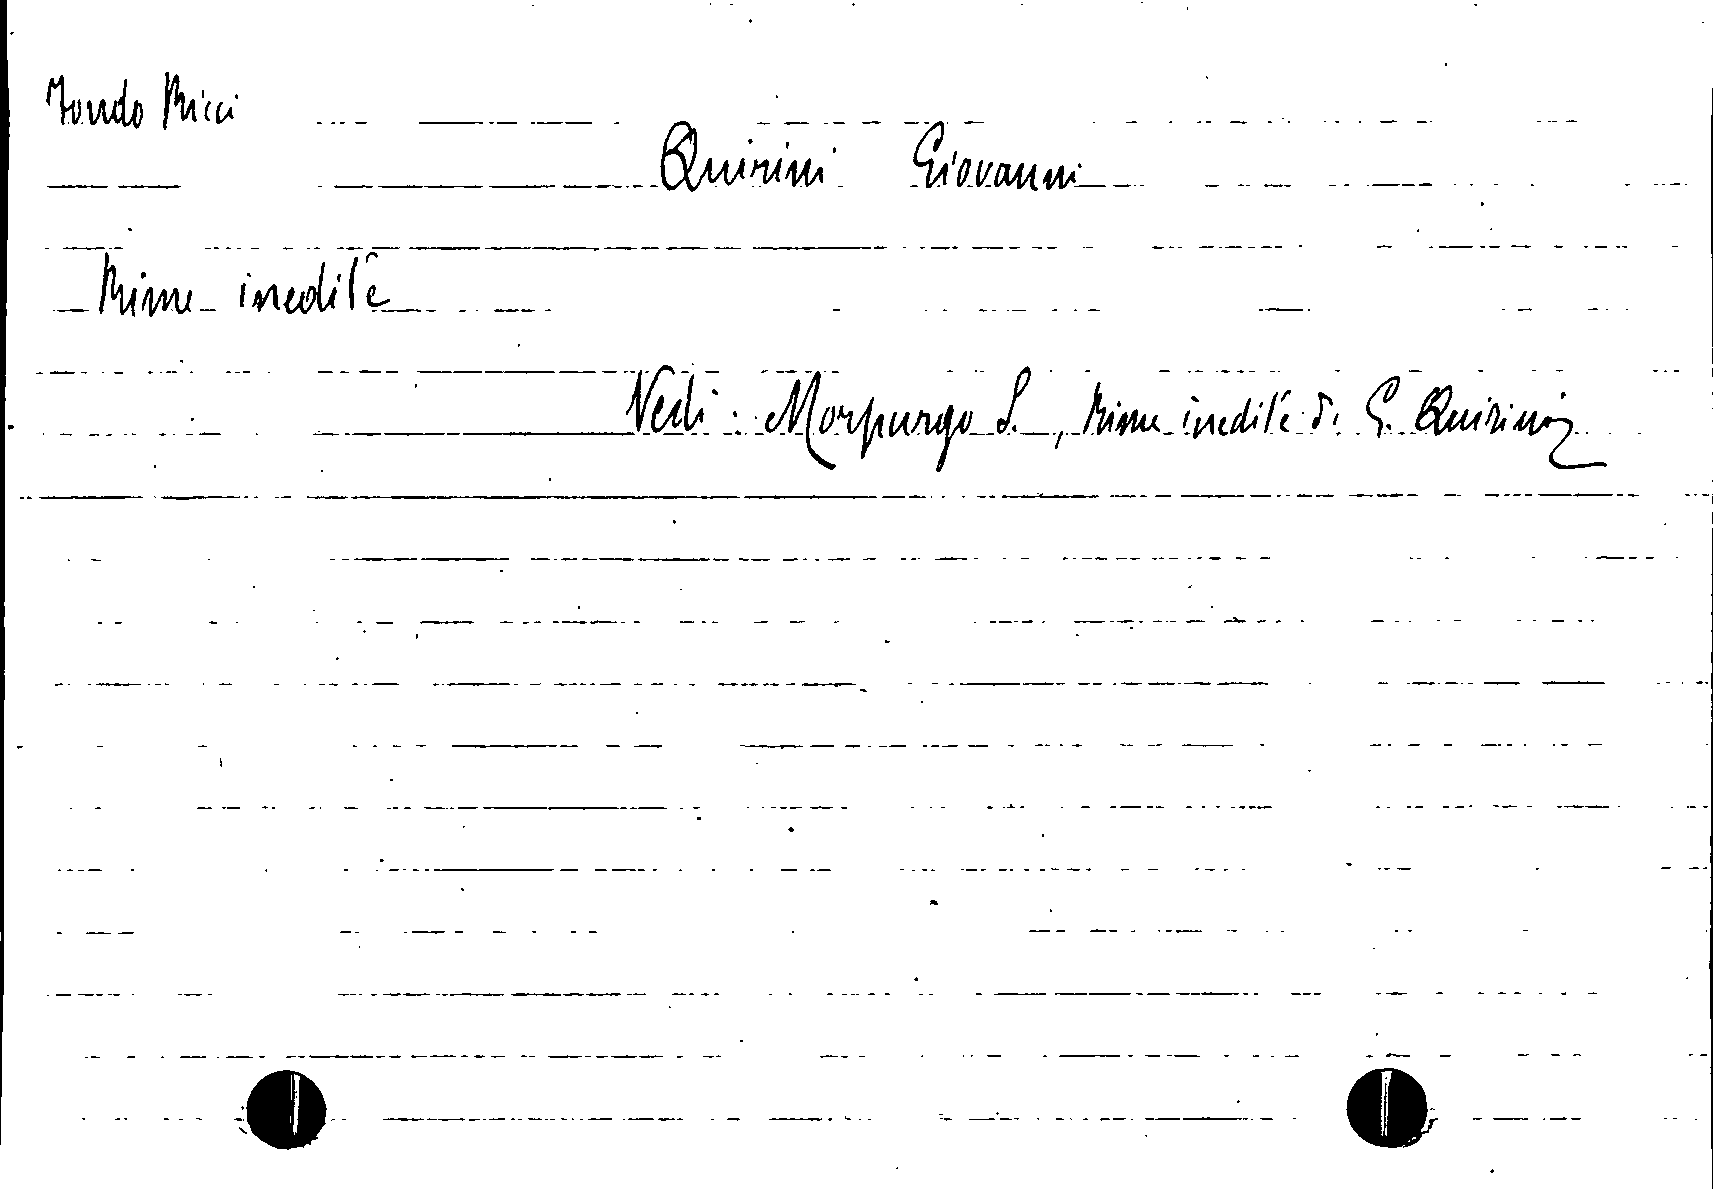 Fondo Ricci
Quirini Giovanni
Rime inedite
Vedi: Morpurgo S., Rime inedite di G. Quirini